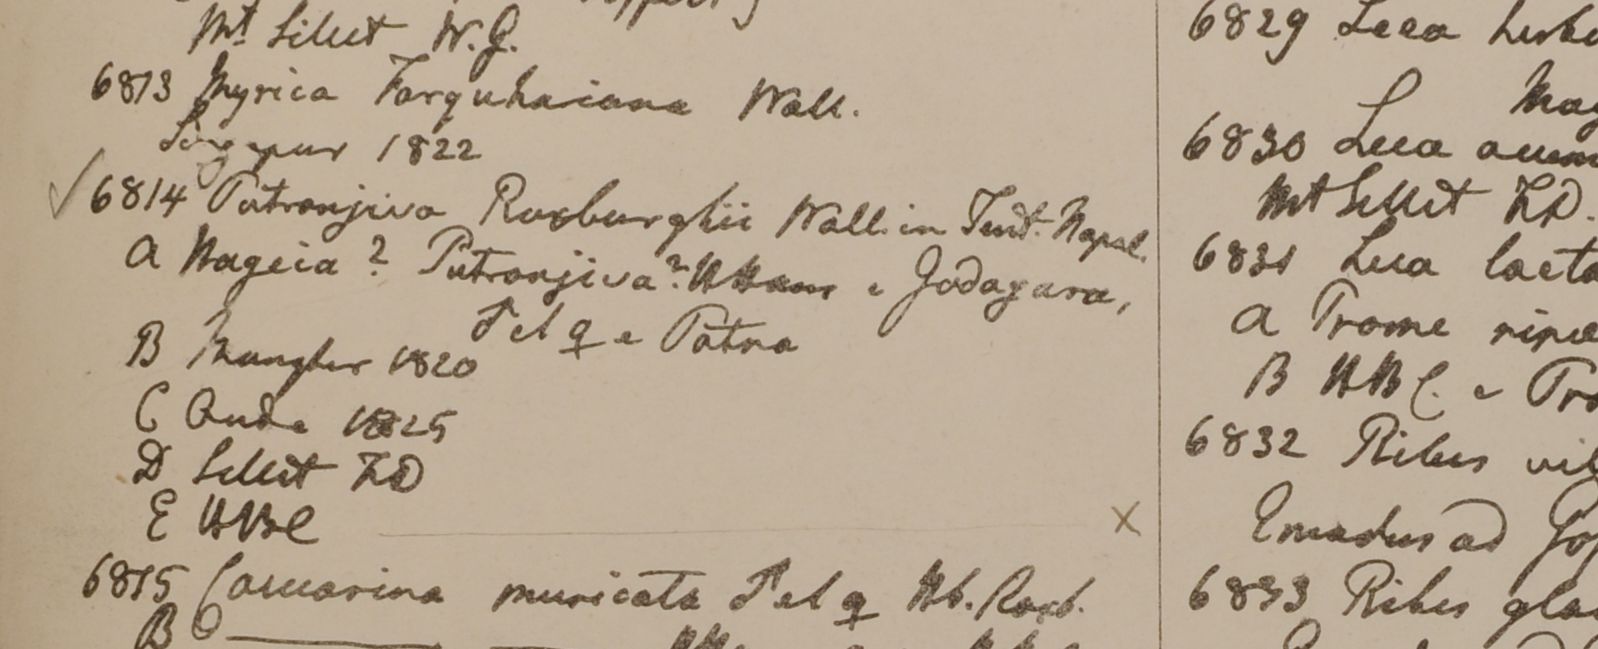 Mt Sillet W.G.
6813 Myrica Farquhariana Wall.
Singapur 1822
6814 Putranjiva Roxburghii Wall. in Tent. Napal.
a Nageia? Putranjiva? HHam e Godagara,
♂ et ♀ e Patna
B Mungher 1820
C Oude 1825
D Sillet FD
E HBC
X
6815 Casuarina muricata ♂ et ♀ Hb. Roxb.
B
6829 Leea
6830 Leea
Mt Sillet FD.
6831 Leea laeta
a Prome ripae
B HBC. e
6832 Ribes
Emodus ad
6833 Ribes